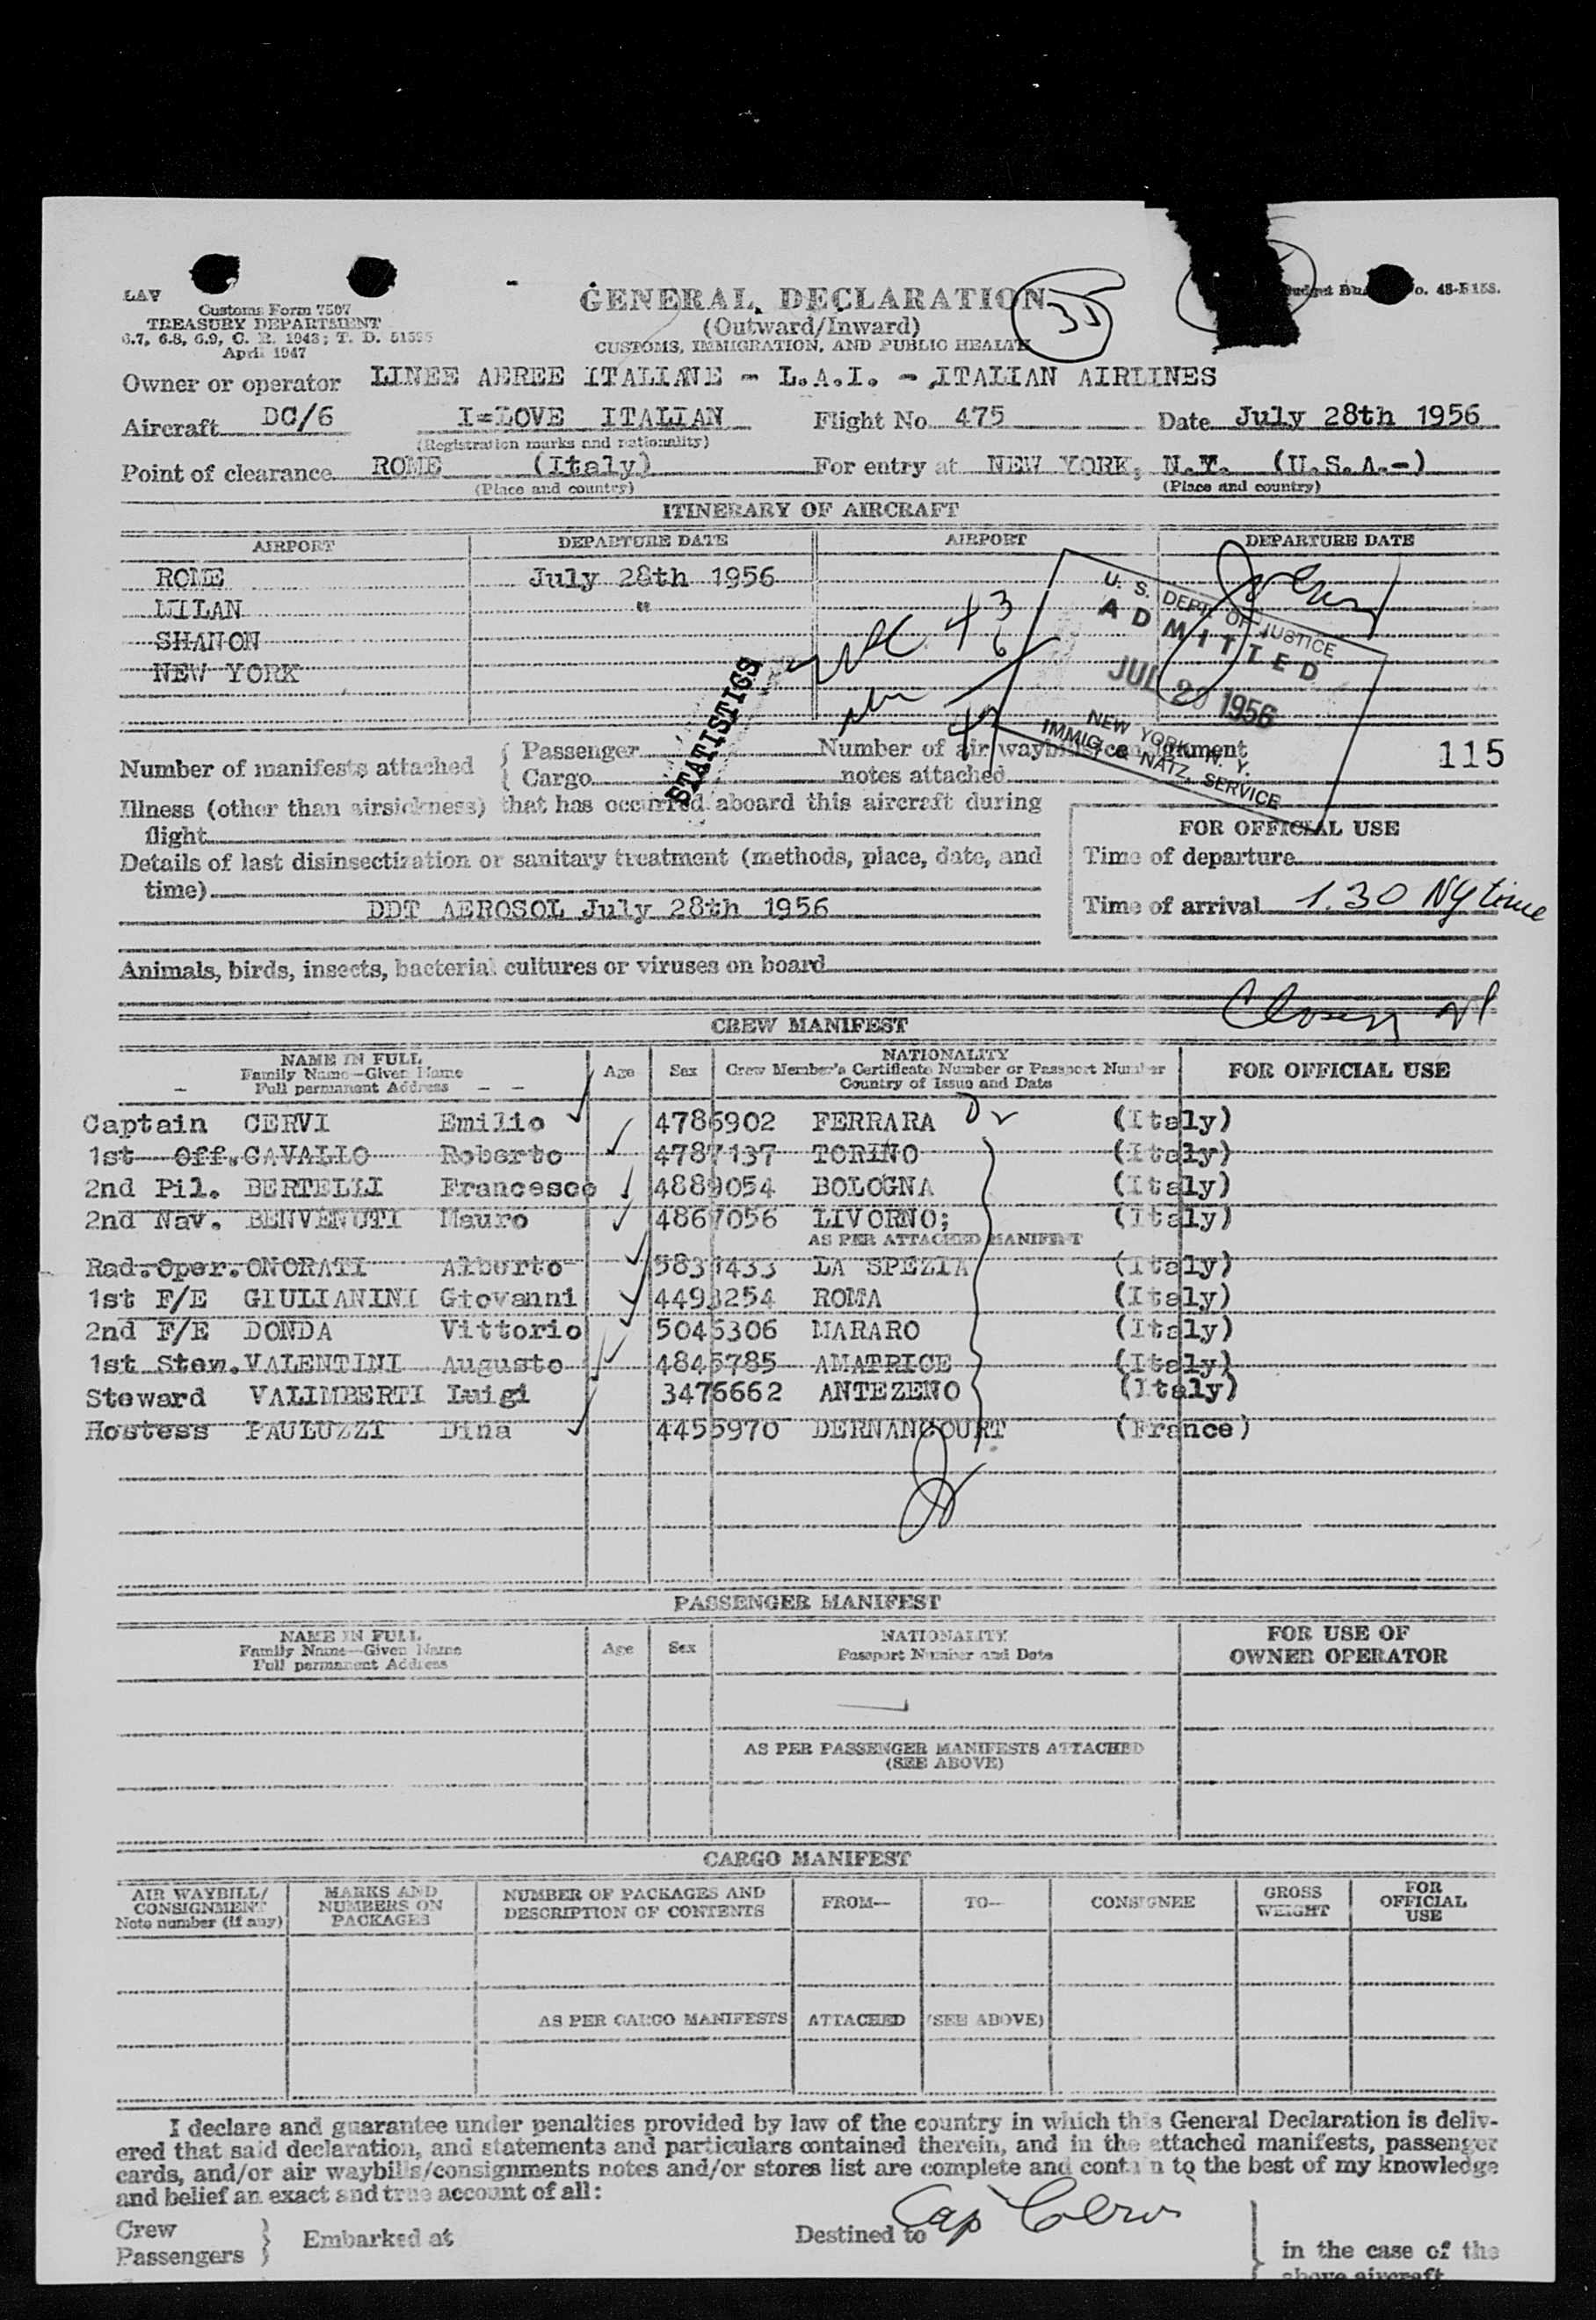 LAV
Customs Form 7507
TREASURY DEPARTMENT
6.7, 6.8, 6.9, C. R. 1943; T. D.
April 1947
GENERAL DECLARATION
(Outward/Inward)
CUSTOMS, IMMIGRATION, AND PUBLIC HEALTH
35
o. 48-R158.
Owner or operator LINEE AEREE ITALIANE - L.A.I. - ITALIAN AIRLINES
Aircraft DC/6 I=LOVE ITALIAN Flight No. 475 Date July 28th 1956
(Registration marks and nationality)
Point of clearance ROME (Italy) For entry at NEW YORK, N.Y. (U.S.A.-)
(Place and country) (Place and country)
ITINERARY OF AIRCRAFT
AIRPORT DEPARTURE DATE AIRPORT DEPARTURE DATE
ROME July 28th 1956
MILAN "
SHANON
NEW YORK
U. S. DEPT. OF JUSTICE
ADMITTED
JUL 29 1956
NEW YORK, N. Y.
IMMIG. & NATZ. SERVICE
STATISTICS
Number of manifests attached { Passenger Number of air waybills/consignment
{ Cargo notes attached
115
Illness (other than airsickness) that has occurred aboard this aircraft during
flight
FOR OFFICIAL USE
Details of last disinsectization or sanitary treatment (methods, place, date, and
time)
Time of departure
DDT AEROSOL July 28th 1956
Time of arrival 1.30 NY time
Animals, birds, insects, bacterial cultures or viruses on board
CREW MANIFEST
NAME IN FULL
Family Name—Given Name
Full permanent Address
Age Sex
NATIONALITY
Crew Member's Certificate Number or Passport Number
Country of Issue and Date
FOR OFFICIAL USE
Captain CERVI Emilio 4786902 FERRARA (Italy)
1st Off. CAVALLO Roberto 4787137 TORINO (Italy)
2nd Pil. BERTELLI Francesco 4889054 BOLOGNA (Italy)
2nd Nav. BENVENUTI Mauro 4867056 LIVORNO; (Italy)
AS PER ATTACHED MANIFEST
Rad.Oper. ONORATI Alberto 5831433 LA SPEZIA (Italy)
1st F/E GIULIANINI Giovanni 4493254 ROMA (Italy)
2nd F/E DONDA Vittorio 5045306 MARARO (Italy)
1st Stew. VALENTINI Augusto 4845785 AMATRICE (Italy)
Steward VALIMBERTI Luigi 3476662 ANTEZENO (Italy)
Hostess PAULUZZI Dina 4455970 DERNANCOURT (France)
PASSENGER MANIFEST
NAME IN FULL
Family Name—Given Name
Full permanent Address
Age Sex
NATIONALITY
Passport Number and Date
FOR USE OF
OWNER OPERATOR
AS PER PASSENGER MANIFESTS ATTACHED
(SEE ABOVE)
CARGO MANIFEST
AIR WAYBILL/
CONSIGNMENT
Note number (if any)
MARKS AND
NUMBERS ON
PACKAGES
NUMBER OF PACKAGES AND
DESCRIPTION OF CONTENTS
FROM—
TO—
CONSIGNEE
GROSS
WEIGHT
FOR
OFFICIAL
USE
AS PER CARGO MANIFESTS ATTACHED (SEE ABOVE)
I declare and guarantee under penalties provided by law of the country in which this General Declaration is deliv-
ered that said declaration, and statements and particulars contained therein, and in the attached manifests, passenger
cards, and/or air waybills/consignments notes and/or stores list are complete and contain to the best of my knowledge
and belief an exact and true account of all:
Cap Cervi
Crew
Passengers } Embarked at Destined to } in the case of the
above aircraft